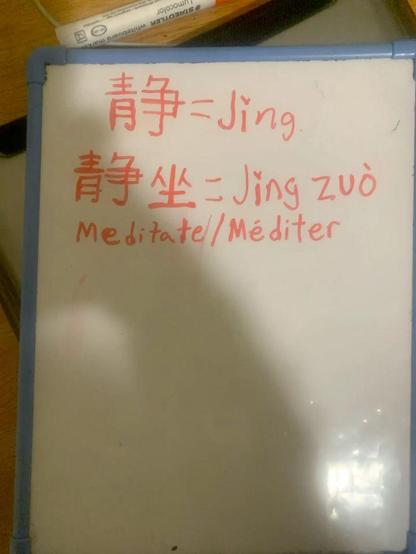 STAEDTLER
Lumocolor
whiteboard marker
静=Jing
静坐=Jing zuò
Meditate//Méditer